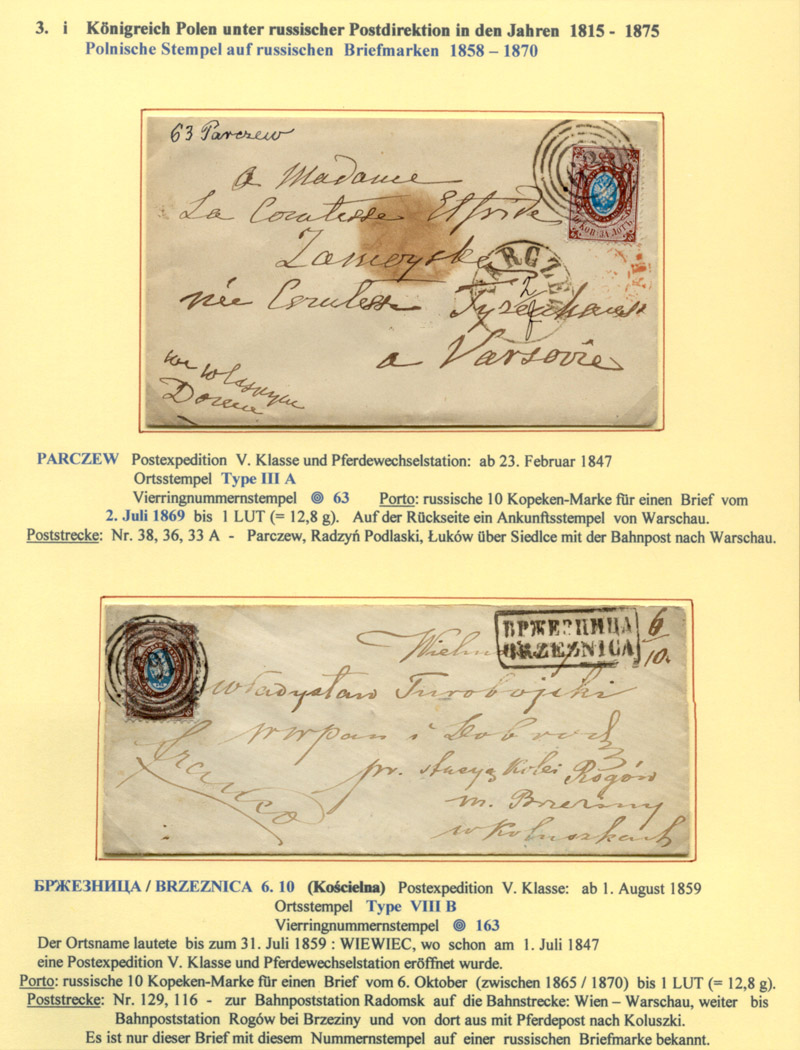 3. i Königreich Polen unter russischer Postdirektion in den Jahren 1815 - 1875
Polnische Stempel auf russischen Briefmarken 1858 – 1870
63 Parczew
a Madame
La Comtesse Elfride
Zamoyska
née Comtesse Tyzenhaus
a Varsovie
we własnym
Domu
PARCZEW
КОП. ЗА ЛОТЪ
PARCZEW Postexpedition V. Klasse und Pferdewechselstation: ab 23. Februar 1847
Ortsstempel Type III A
Vierringnummernstempel 63 Porto: russische 10 Kopeken-Marke für einen Brief vom
2. Juli 1869 bis 1 LUT (= 12,8 g). Auf der Rückseite ein Ankunftsstempel von Warschau.
Poststrecke: Nr. 38, 36, 33 A - Parczew, Radzyń Podlaski, Łuków über Siedlce mit der Bahnpost nach Warschau.
БРЖЕЗНИЦА
BRZEZNICA
6/10.
Władysław Turobojski
w Wpan i Dobrodz
pr. stacyą Kolei Rogów
m. Brzeziny
w Koluszkach
Franco
БРЖЕЗНИЦА / BRZEZNICA 6. 10 (Kościelna) Postexpedition V. Klasse: ab 1. August 1859
Ortsstempel Type VIII B
Vierringnummernstempel 163
Der Ortsname lautete bis zum 31. Juli 1859 : WIEWIEC, wo schon am 1. Juli 1847
eine Postexpedition V. Klasse und Pferdewechselstation eröffnet wurde.
Porto: russische 10 Kopeken-Marke für einen Brief vom 6. Oktober (zwischen 1865 / 1870) bis 1 LUT (= 12,8 g).
Poststrecke: Nr. 129, 116 - zur Bahnpoststation Radomsk auf die Bahnstrecke: Wien – Warschau, weiter bis
Bahnpoststation Rogów bei Brzeziny und von dort aus mit Pferdepost nach Koluszki.
Es ist nur dieser Brief mit diesem Nummernstempel auf einer russischen Briefmarke bekannt.